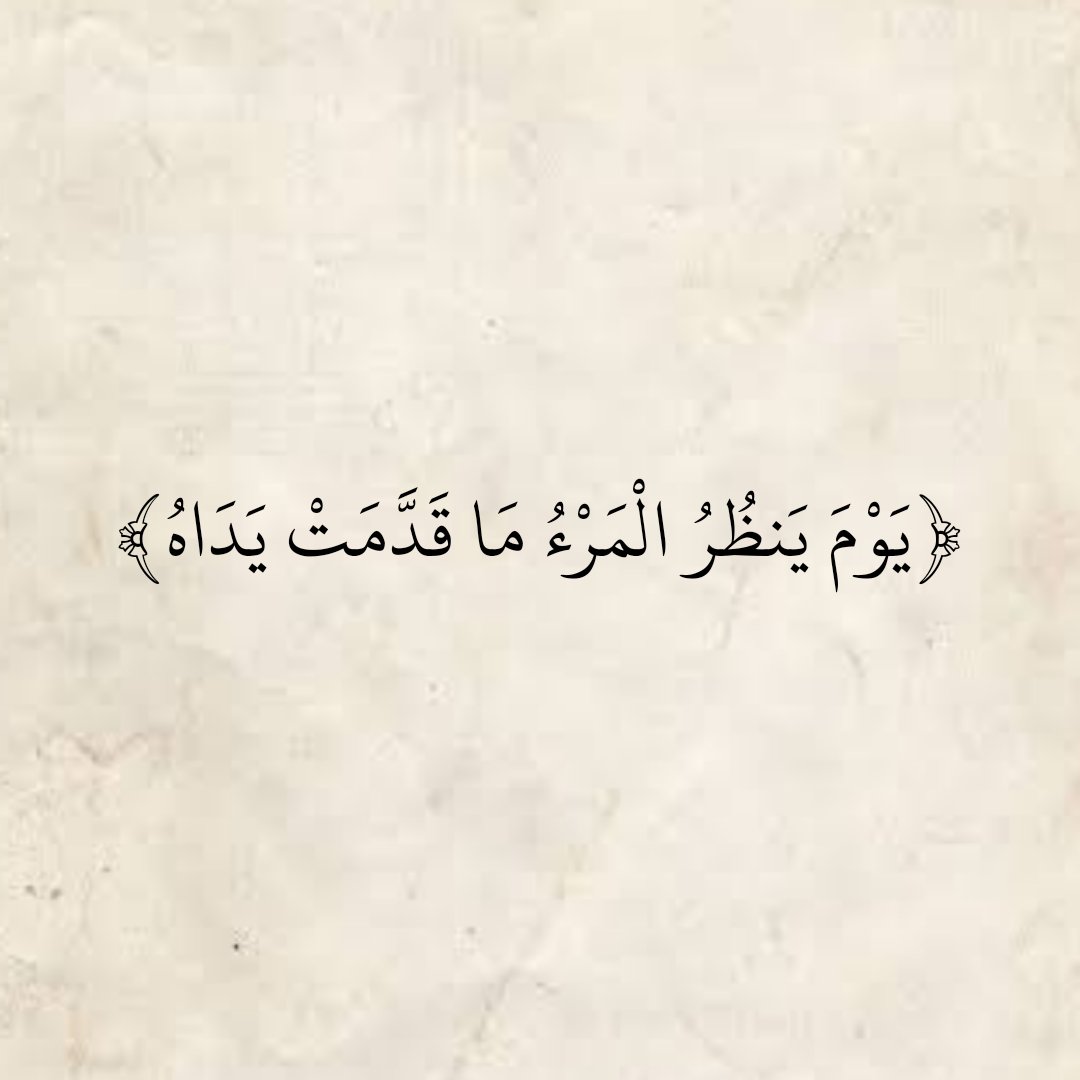 ﴿يَوْمَ يَنظُرُ الْمَرْءُ مَا قَدَّمَتْ يَدَاهُ﴾